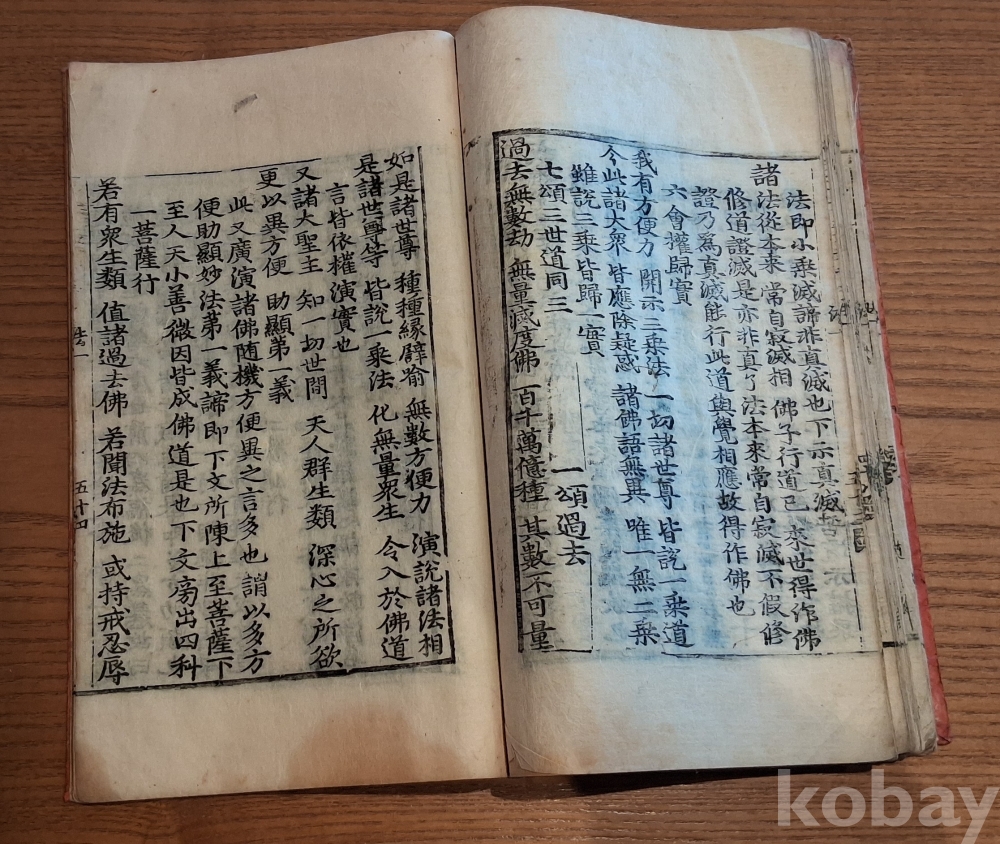 法即小乘滅諦非真滅也下示真滅
諸法從本來 常自寂滅相 佛子行道已 來世得作佛
修道證滅是亦非真了法本來常自寂滅不假修
證乃爲真滅能行此道與覺相應故得作佛也
六會權歸實
我有方便力 開示三乘法 一切諸世尊 皆說一乘道
今此諸大衆 皆應除疑惑 諸佛語無異 唯一無二乘
雖說三乘皆歸一實
七頌三世道同三 一頌過去
過去無數劫 無量滅度佛 百千萬億種 其數不可量
如是諸世尊 種種緣譬喻 無數方便力 演說諸法相
是諸世尊等 皆說一乘法 化無量衆生 令入於佛道
言皆依權演實也
又諸大聖主 知一切世間 天人群生類 深心之所欲
更以異方便 助顯第一義
此又廣演諸佛随機方便異之言多也謂以多方
便助顯妙法第一義諦即下文所陳上至菩薩下
至人天小善微因皆成佛道是也下文旁出四科
一菩薩行
若有衆生類 值諸過去佛 若聞法布施 或持戒忍辱
五十四
kobay